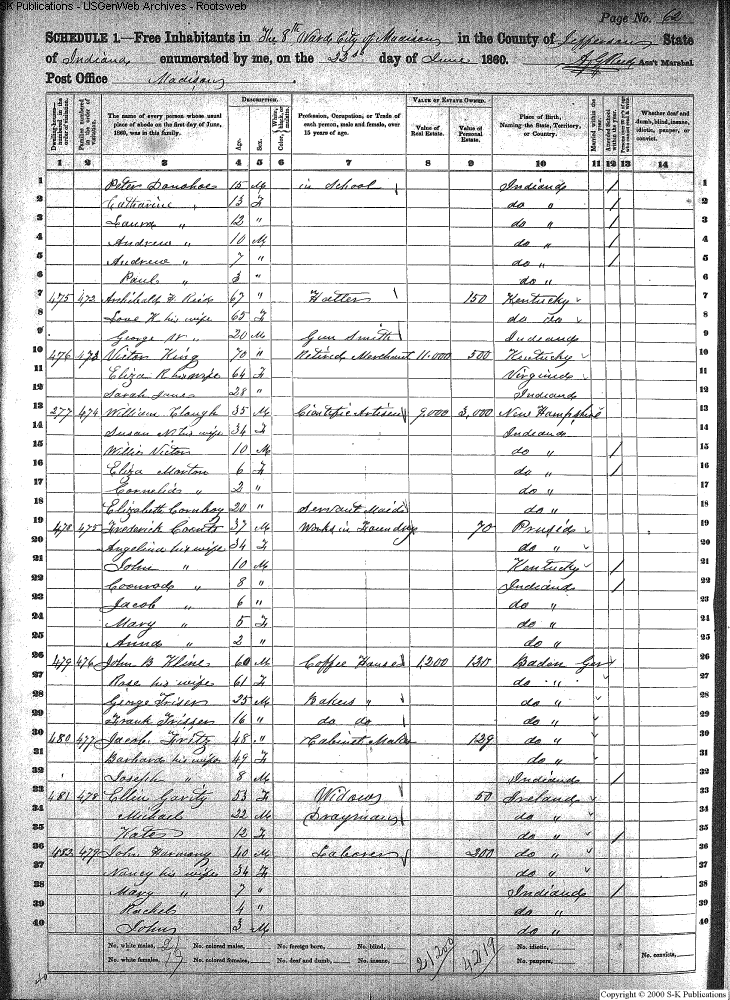 S-K Publications - USGenWeb Archives - Rootsweb
Page No. 62
SCHEDULE 1.—Free Inhabitants in The 8th Ward City of Madison in the County of Jefferson State
of Indiana enumerated by me, on the 23rd day of June 1860. Ass't Marshal
Post Office Madison
DESCRIPTION. VALUE OF ESTATE OWNED.
The name of every person whose usual place of abode on the first day of June, 1860, was in this family.
Age. Sex. White, black, or mulatto.
Profession, Occupation, or Trade of each person, male and female, over 15 years of age.
Value of Real Estate. Value of Personal Estate.
Place of Birth, Naming the State, Territory, or Country.
Married within the year. Attended School within the year.
Whether deaf and dumb, blind, insane, idiotic, pauper, or convict.
1 2 3 4 5 6 7 8 9 10 11 12 13 14
1 Peter Donahoe 15 M in School Indiana / 1
2 Catharine " 13 F do " / 2
3 Laura " 12 " do " / 3
4 Andrew " 10 M do " / 4
5 Andrew " 7 " do " / 5
6 Paul " 3 " do " 6
7 475 472 Archibald Reid 67 " Hatter 150 Kentucky 7
8 his wife 65 F do do 8
9 George W " 20 M Gun Smith Indiana 9
10 476 473 Victor King 70 " Retired Merchant 11.000 500 Kentucky 10
11 Eliza R his wife 64 F Virginia 11
12 Sarah Jane 28 " Indiana 12
13 277 474 William Clough 35 M Artisen 9,000 3,000 New Hampshire 13
14 Susan N his wife 34 F Indiana 14
15 Willie Victor 10 M do " / 15
16 Eliza Morton 6 F do " / 16
17 Cornelia 2 " do " 17
18 Elizabeth Cornhoy 20 " Servant Maid do " 18
19 478 475 Frederick 37 M Works in Foundry 70 Prusia 19
20 Angelina his wife 34 F do " 20
21 John " 10 M Kentucky / 21
22 Coonrod " 8 " Indiana / 22
23 Jacob " 6 " do " 23
24 Mary " 5 F do " 24
25 Anna " 2 " do " 25
26 479 476 John B Kline 60 M Coffee House 1,200 130 Baden Ger 26
27 Rose his wife 61 F do " 27
28 George Friser 25 M Bakers " do " 28
29 Frank Frisser 16 " do do do " 29
30 480 477 Jacob Fritz 48 " Cabinet Maker 129 do " 30
31 Barbara his wife 49 F do " 31
32 Joseph " 8 M Indiana / 32
33 481 478 Ellin Gavity 53 F Widow 50 Ireland 33
34 Michael 22 M Drayman do " 34
35 Kate 12 F do " / 35
36 482 479 John Harmony 40 M Laborer 300 do " 36
37 Nancy his wife 34 F do " 37
38 Mary " 7 " Indiana / 38
39 Rachel 4 " do " 39
40 John 3 M do " 40
No. white males, 21 No. colored males, No. foreign born, No. blind, 21200 4219 No. idiotic,
No. white females, 19 No. colored females, No. deaf and dumb, No. insane, No. paupers, No. convicts,
Copyright © 2000 S-K Publications